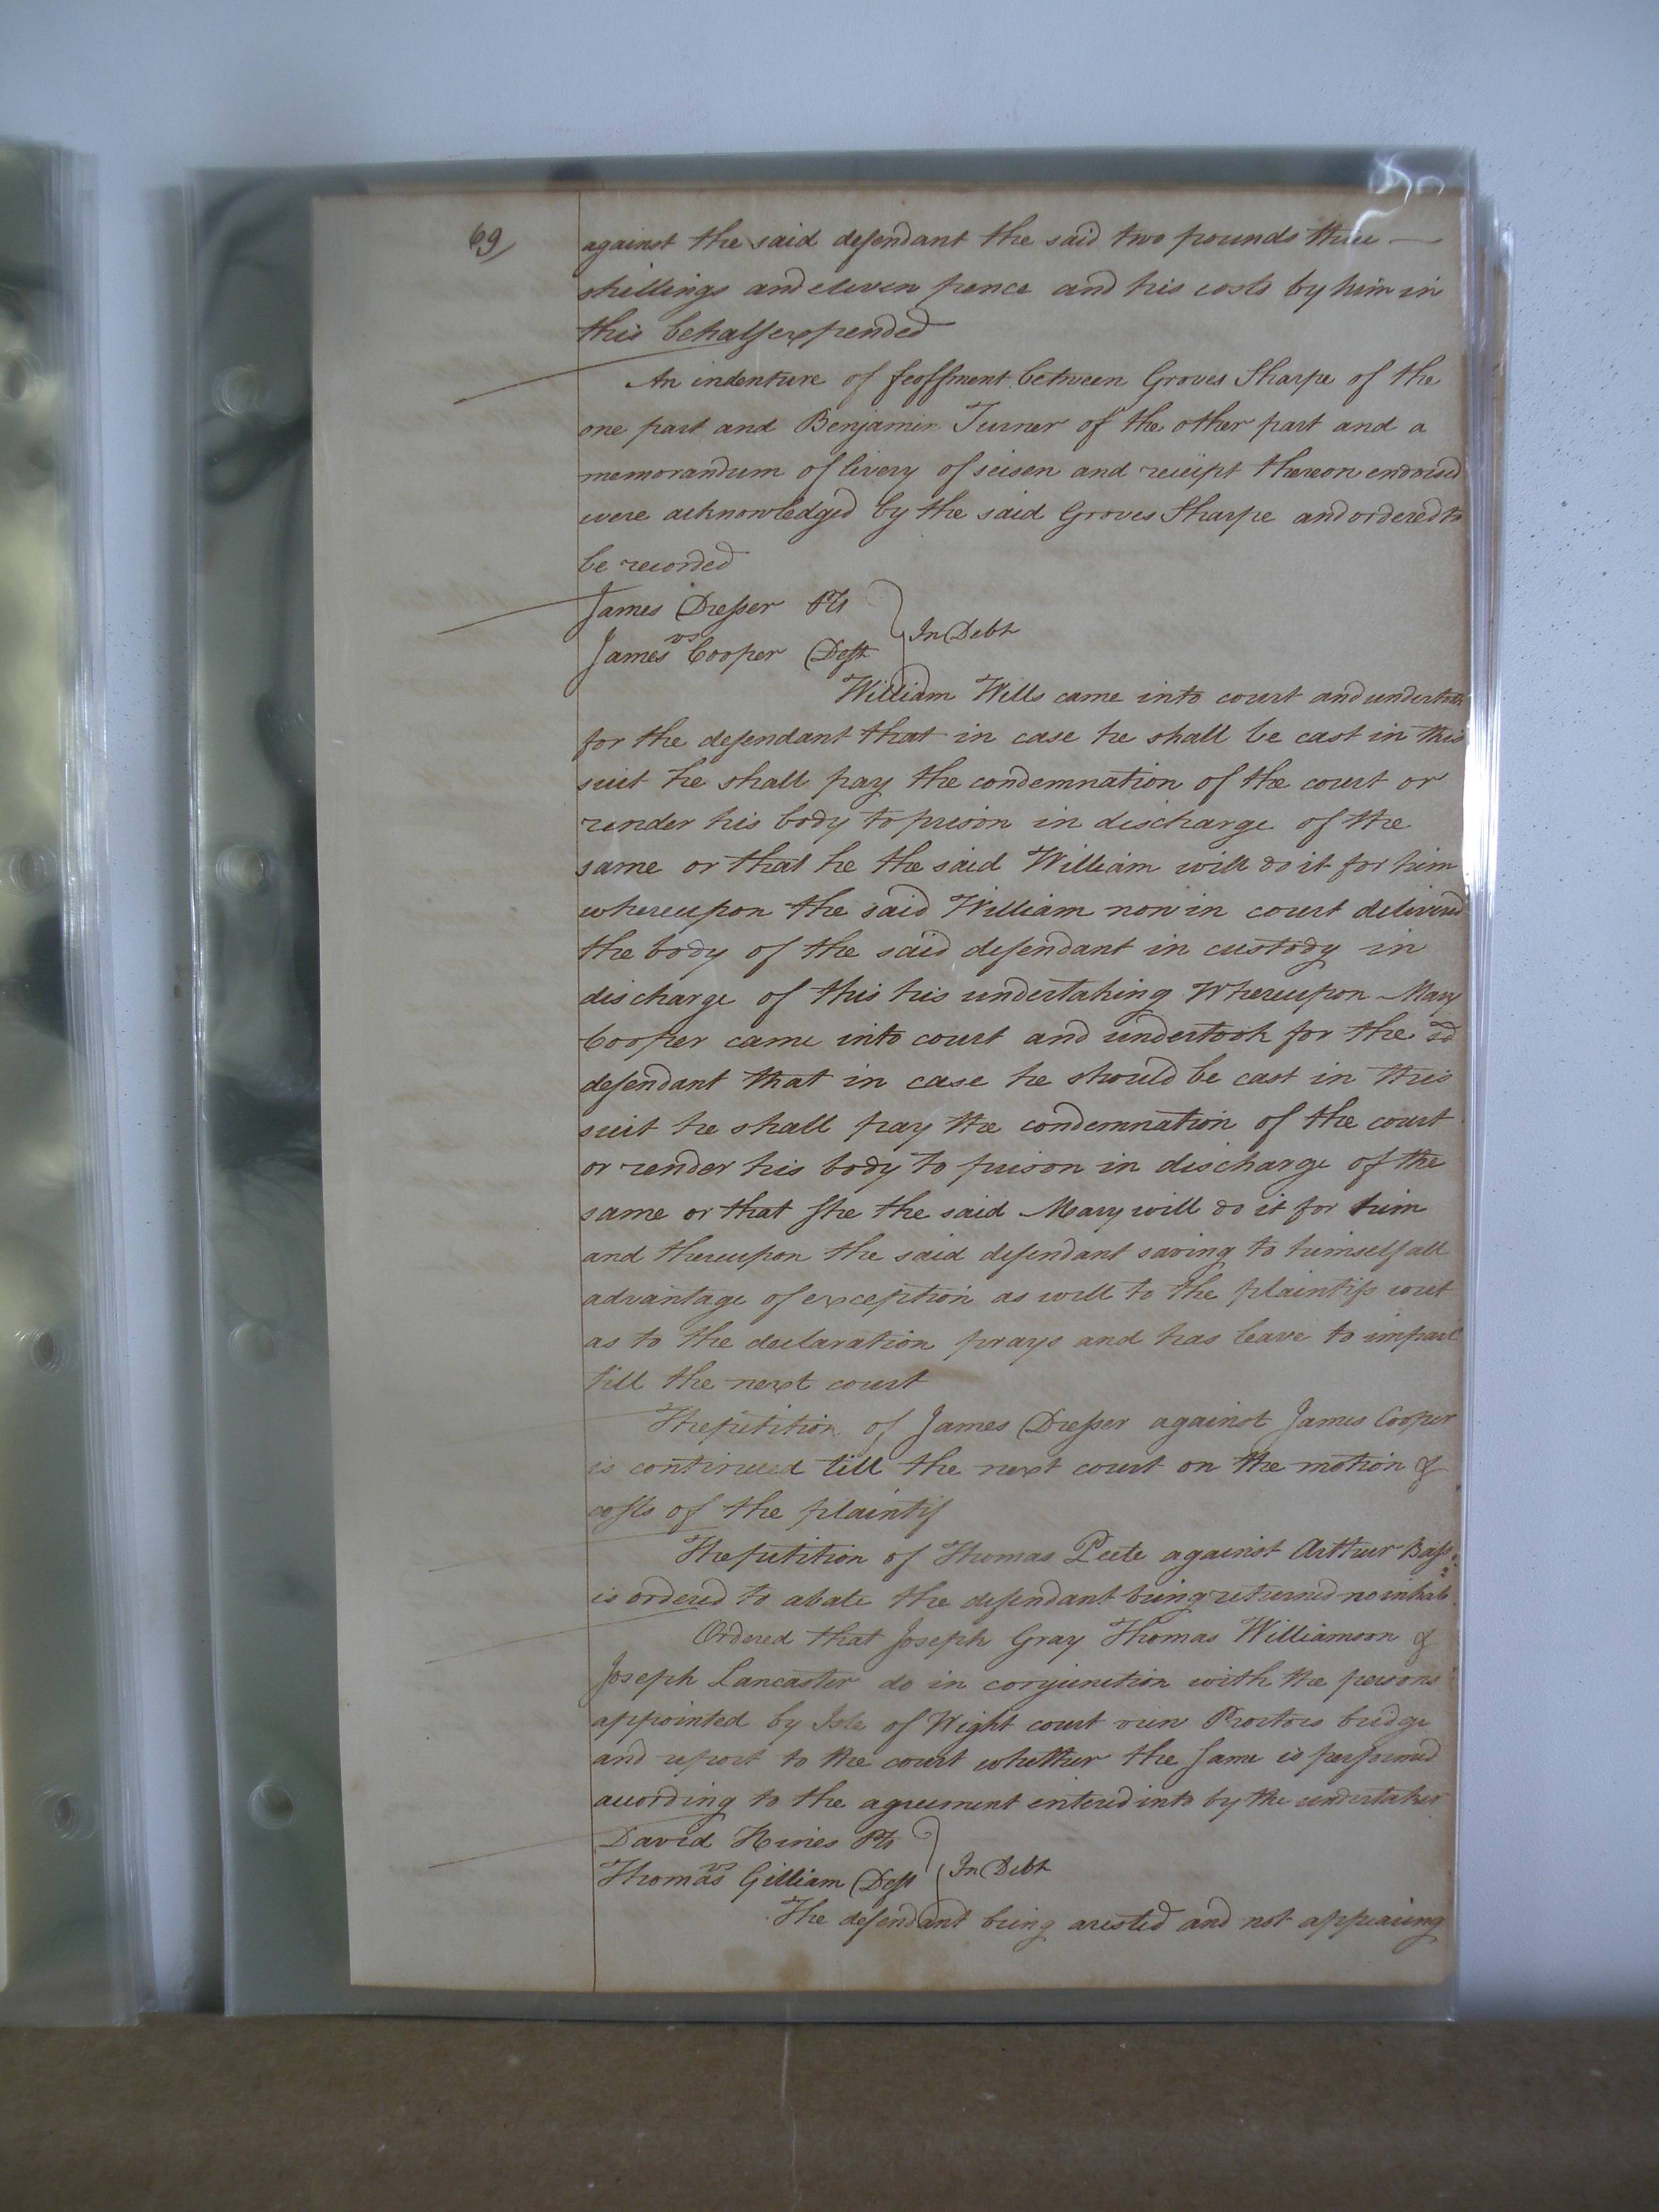 69
against the said defendant the said two pounds three —
shillings and eleven pence and his costs by him in
this behalf expended
An indenture of feoffment between Groves Sharpe of the
one part and Benjamin Turner of the other part and a
memorandum of livery of seisen and receipt thereon endorsed
were acknowledged by the said Groves Sharpe and ordered to
be recorded
James Dresser Plt
vs
James Cooper Deft
In Debt
William Wells came into court and undertook
for the defendant that in case he shall be cast in this
suit he shall pay the condemnation of the court or
render his body to prison in discharge of the
same or that he the said William will do it for him
whereupon the said William now in court delivered
the body of the said defendant in custody in
discharge of this his undertaking Whereupon Mary
Cooper came into court and undertook for the sd
defendant that in case he should be cast in this
suit he shall pay the condemnation of the court
or render his body to prison in discharge of the
same or that she the said Mary will do it for him
and thereupon the said defendant saving to himself all
advantage of exception as well to the plaintifs writ
as to the declaration prays and has leave to imparl
till the next court
The petition of James Dresser against James Cooper
is continued till the next court on the motion &
costs of the plaintif
The petition of Thomas Peete against Arthur Bass
is ordered to abate the defendant being returned no inhab
Ordered that Joseph Gray Thomas Williamson &
Joseph Lancaster do in conjunction with the persons
appointed by Isle of Wight court view Proctors bridge
and report to the court whether the same is performed
according to the agreement entered into by the undertaker
David Hines Plt
vs
Thomas Gilliam Deft
In Debt
The defendant being arested and not appearing